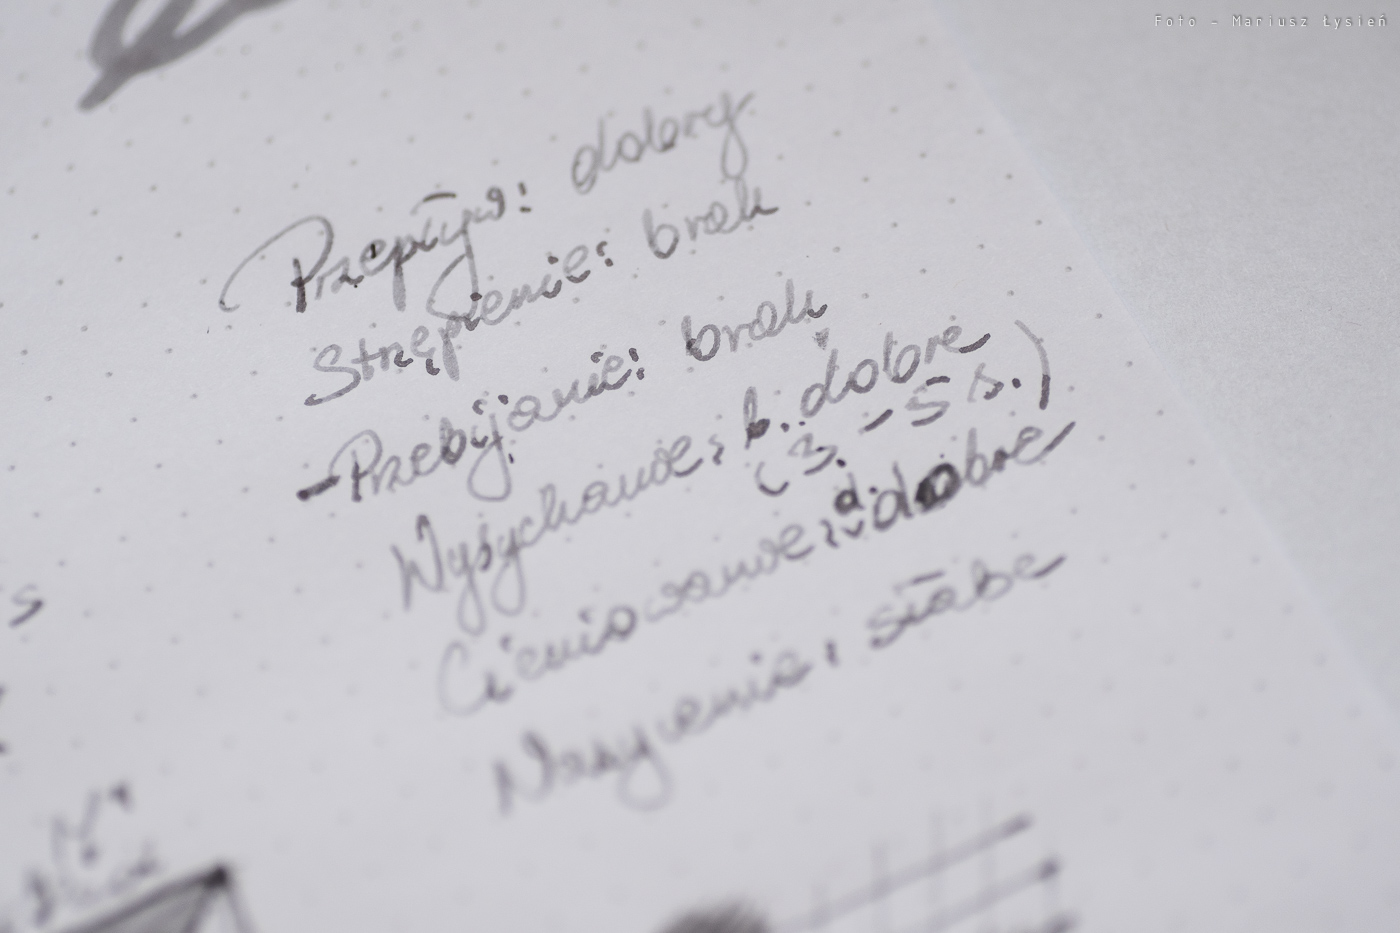 Foto - Mariusz Łysień
Przepływ: dobry
Strzępienie: brak
- Przebijanie: brak
Wysychanie: b. dobre
(3. - 5 s.)
Cieniowanie: d. dobre
Nasycenie: słabe
s